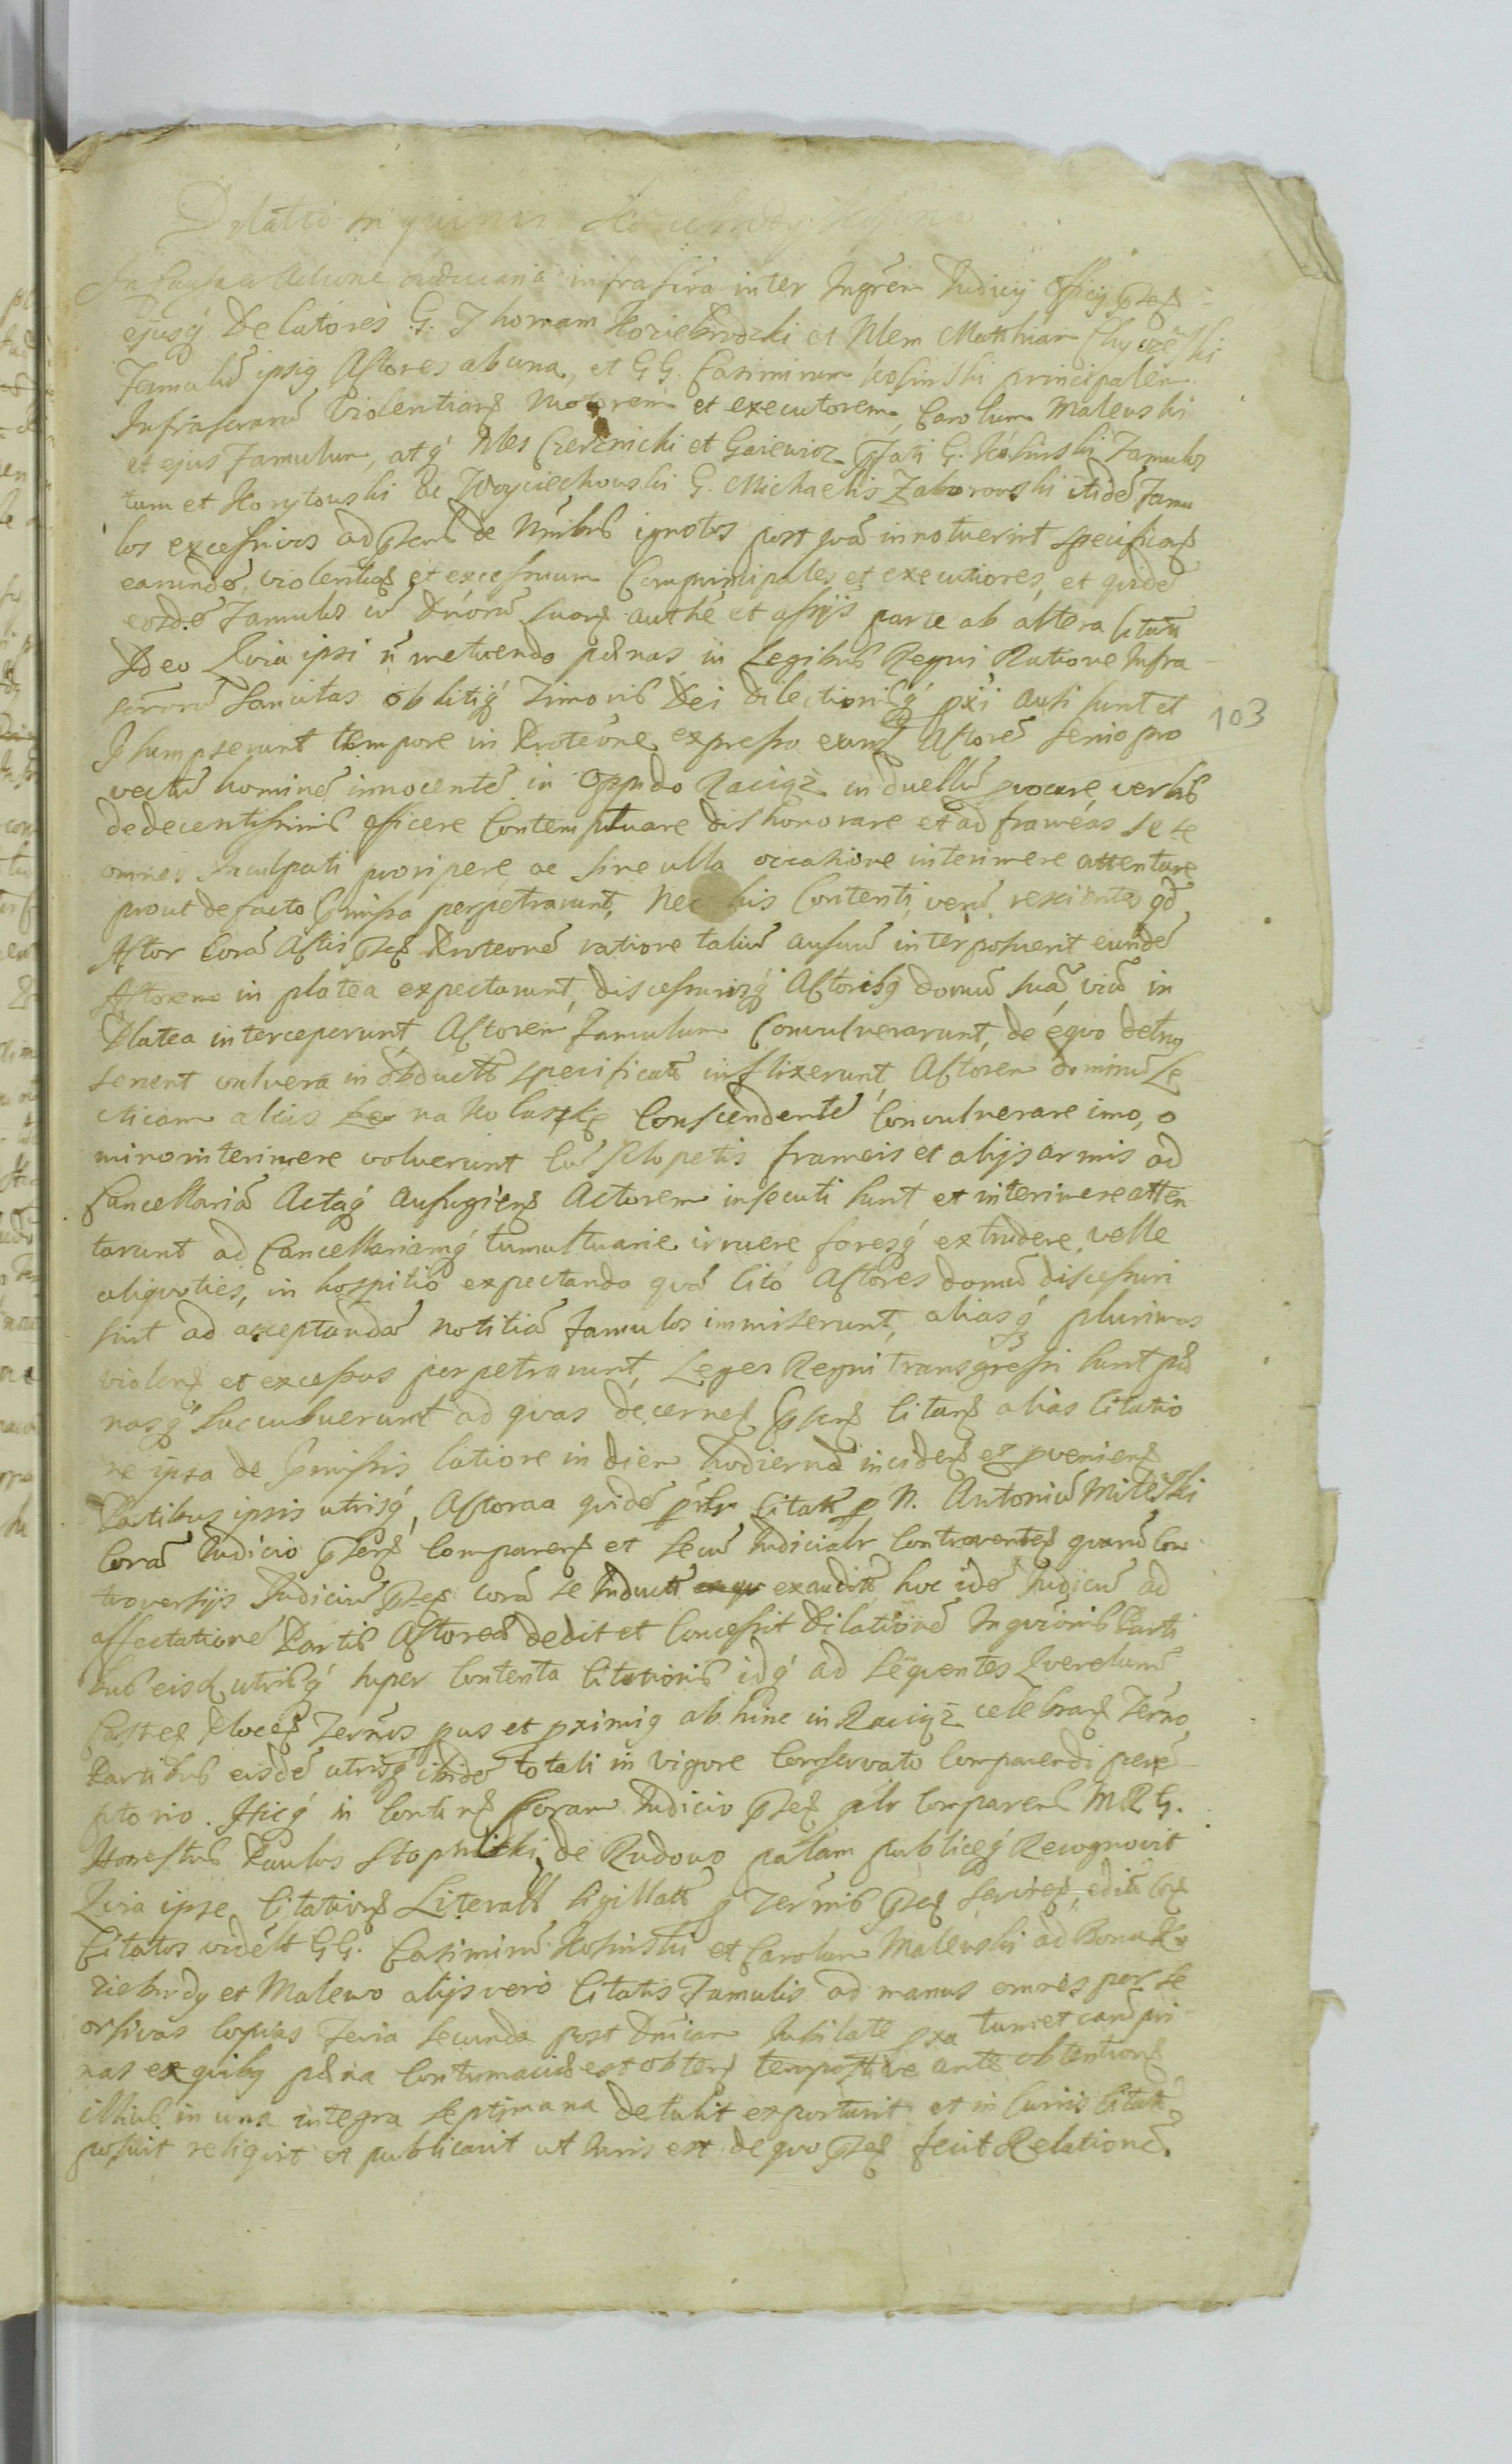 Dilatio
In Causa et Actione infrascrã inter Ingrem Judicij Officij
ejusq Delatores G. Thomam Koziebrodzki et Nlem Matthiam
Famulũ ipsig Actores ab una, et GG. Casimirum Kosinski principalem
Infrascrarũ Violentiarꝫ Motorem et executorem, Carolum Malewski
et ejus Famulum, atq Nles Czerznicki et Gaiewicz G. Kosinski Famulos
tum et Korytowski ac Woyciechowski G. Michaelis Zaborowski itidẽ Famu
los excessivos ad de Nnibus ignotos post quã innotuerint specificarꝫ
earundẽ violentiarꝫ et excessuum Comprincipales et executores, et quidẽ
eosdẽ Famulos cũ Dnorũ suorꝫ authẽ et assijs parte ab altera Citatũ
Ideo Quia ipsi ñ metuendo pænas in Legibus Regni Ratione Infra
scrorũ Sancitas oblitiq Timoris Dei Dilectionisq pxi ausi sunt et
Psumpserunt tempore in Proteõne expresso eund Actorẽ senio pro
vectũ hominẽ innocentẽ in Oppido Raciąż in duellũ pvocare, verbis
dedecentissimis afficere Contemptuare dishonorare et ad frameas se se
omnes Inculpati proripere ac sine ulla occasione interimere attentare
prout de facto Pmissa perpetrarunt, Nec his Contenti, verũ rescientes qd
Actor Corã Actis Proteonẽ ratione taliũ ausuũ interposuerit eundẽ
Actorem in platea expectarunt, discessurisq Actoribg domũ suã viã in
Platea interceperunt, Actorem Famulum Convulnerarunt, de equo detru
serunt vulnera in obductis specificata inflixerunt, Actorem dominũ Le
cticam alias na Kolaskę Conscendentẽ Convulnerare imo, o
mino interimere voluerunt Cũ Sclopetis frameis et alijs armis ad
Cancellariã Actaq Aufugienꝫ Actorem insecuti sunt et interimere atten
tarunt ad Cancellariamq tumultuarie irruere foresq extrudere velle
aliquoties, in hospitio expectando quã Citò Actores domũ discessuri
sint ad acceptandã Notitiã Famulos immiserunt, aliasq plurimas
violenꝫ et excessus perpetrarunt, Leges Regni transgressi sunt pæ
nasq succubuerunt ad quas decernenꝫ pserꝫ Citarꝫ alias Citatio
ne ipsa de Pmissis latiore in diem hodiernã incidenꝫ et pvenienꝫ
Partibus ipsis utrisq, Actorea quidẽ Citatis p N. Antoniũ Mileski
Corã Judicio Comparenꝫ et secũ Judicialr Controvertenꝫ quarũ Con
troversijs Judiciũ corã se Inductis exauditis hoc idẽ Judiciũ ad
affectationẽ Partis Actoreæ dedit et Concessit Dilationẽ Inquõnis Parti
bus eisdẽ utrisq super Contenta Citationis idq ad Sequentes Querelarũ
Castrẽ Plocẽ Terños pus et pximig ab hinc in Raciąż celebranꝫ Terño
Partibus eisdẽ utrisq ibidẽ totali in vigore Conservato Comparendi perẽ
ptorio. Hicq in Continꝫ Coram Judicio plr Comparenꝫ MRG.
Honestus Paulus Stopnicki de Rudowo palam publiceq Recognovit
Quia ipse Citationꝫ Literales sigillatꝫ
Citatos videlt GG. Casimirũ Kosinski et Carolum Malewski ad Bona Ko
ziebrody et Malewo alijs verò Citatis Famulis ad manus omnes per se
orsivas Copias Feria secunda post Dnicam Jubilate pxa tum et
nas ex quibg pæna Contumaciæ est obtenꝫ tempestive ante obtentionꝫ
illius in una integra septimana detulit exportavit et in Curiis Citatꝫ
posuit reliquit et publicavit ut Juris est de quo fecit Relationẽ.
103